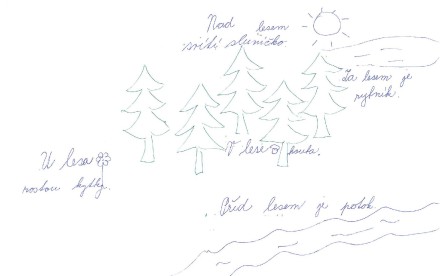 Nad lesem
svítí sluníčko.
Za lesem je
rybník.
V lese houba.
U lesa
rostou kytky.
Před lesem je potok.